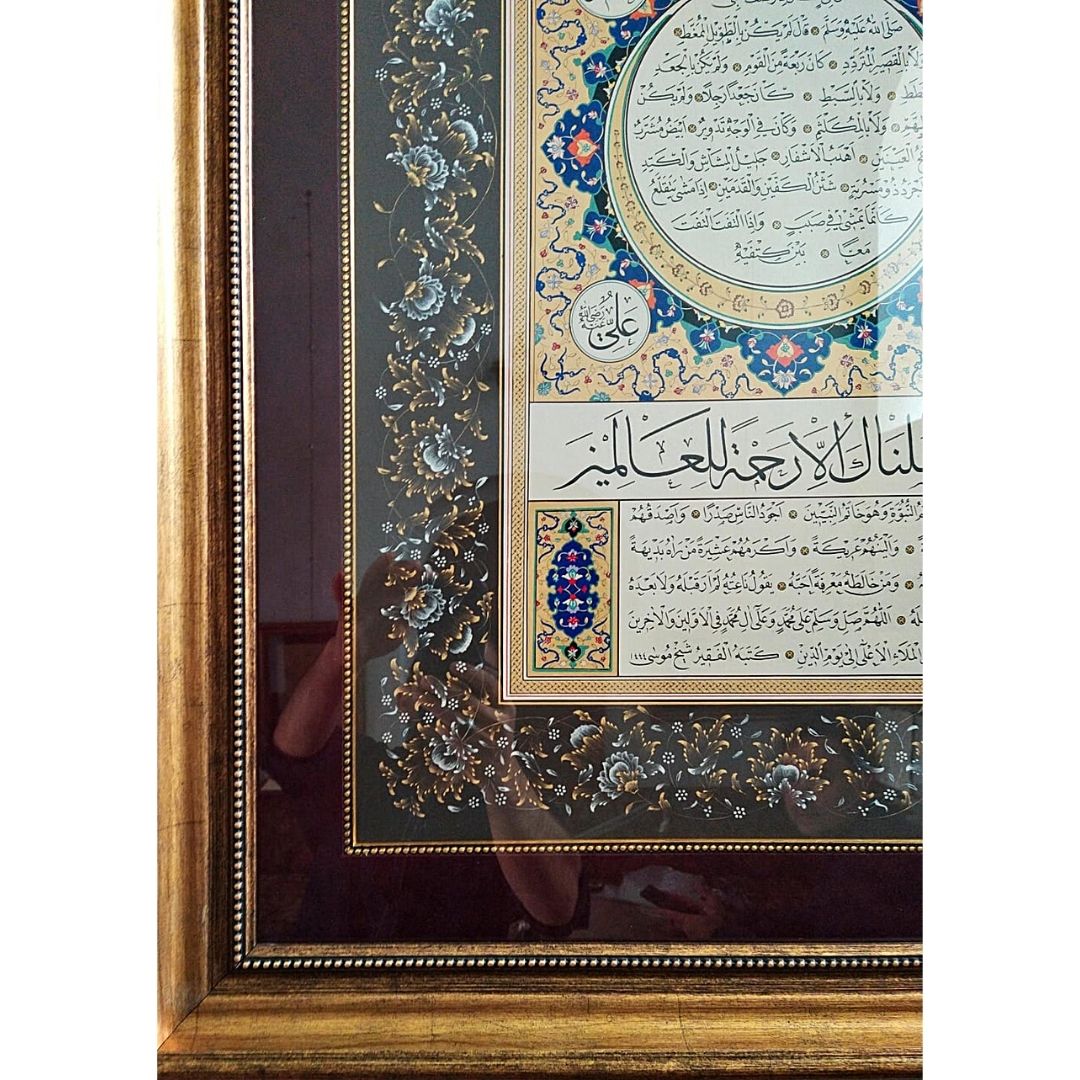 صَلَّى اللهُ عَلَيْهِ وَسَلَّمَ ۞ قَالَ لَمْ يَكُنْ بِالطَّوِيلِ الْمُمَّغِطِ
وَلَا بِالْقَصِيرِ الْمُتَرَدِّدِ ۞ كَانَ رَبْعَةً مِنَ الْقَوْمِ ۞ وَلَمْ يَكُنْ بِالْجَعْدِ
وَلَا بِالسَّبِطِ ۞ كَانَ جَعْدًا رَجِلًا ۞ وَلَمْ يَكُنْ
وَلَا بِالْمُكَلْثَمِ ۞ وَكَانَ فِي الْوَجْهِ تَدْوِيرٌ ۞ أَبْيَضُ مُشْرَبٌ
الْعَيْنَيْنِ ۞ أَهْدَبُ الْأَشْفَارِ ۞ جَلِيلُ الْمُشَاشِ وَالْكَتَدِ
أَجْرَدُ ذُو مَسْرُبَةٍ ۞ شَثْنُ الْكَفَّيْنِ وَالْقَدَمَيْنِ ۞ إِذَا مَشَى يَتَقَلَّعُ
كَأَنَّمَا يَمْشِي فِي صَبَبٍ ۞ وَإِذَا الْتَفَتَ الْتَفَتَ
مَعًا ۞ بَيْنَ كَتِفَيْهِ
عَلِيّ رَضِيَ اللهُ عَنْهُ
لْنَاكَ إِلَّا رَحْمَةً لِلْعَالَمِينَ
النُّبُوَّةِ وَهُوَ خَاتَمُ النَّبِيِّينَ ۞ أَجْوَدُ النَّاسِ صَدْرًا ۞ وَأَصْدَقُهُمْ
وَأَلْيَنُهُمْ عَرِيكَةً ۞ وَأَكْرَمُهُمْ عَشِيرَةً مَنْ رَآهُ بَدِيهَةً
وَمَنْ خَالَطَهُ مَعْرِفَةً أَحَبَّهُ ۞ يَقُولُ نَاعِتُهُ لَمْ أَرَ قَبْلَهُ وَلَا بَعْدَهُ
اَللّٰهُمَّ صَلِّ وَسَلِّمْ عَلَى مُحَمَّدٍ وَعَلَى آلِ مُحَمَّدٍ فِي الْأَوَّلِينَ وَالْآخِرِينَ
الْمَلَاءِ الْأَعْلَى إِلَى يَوْمِ الدِّينِ ۞ كَتَبَهُ الْفَقِيرُ شيخ موسى